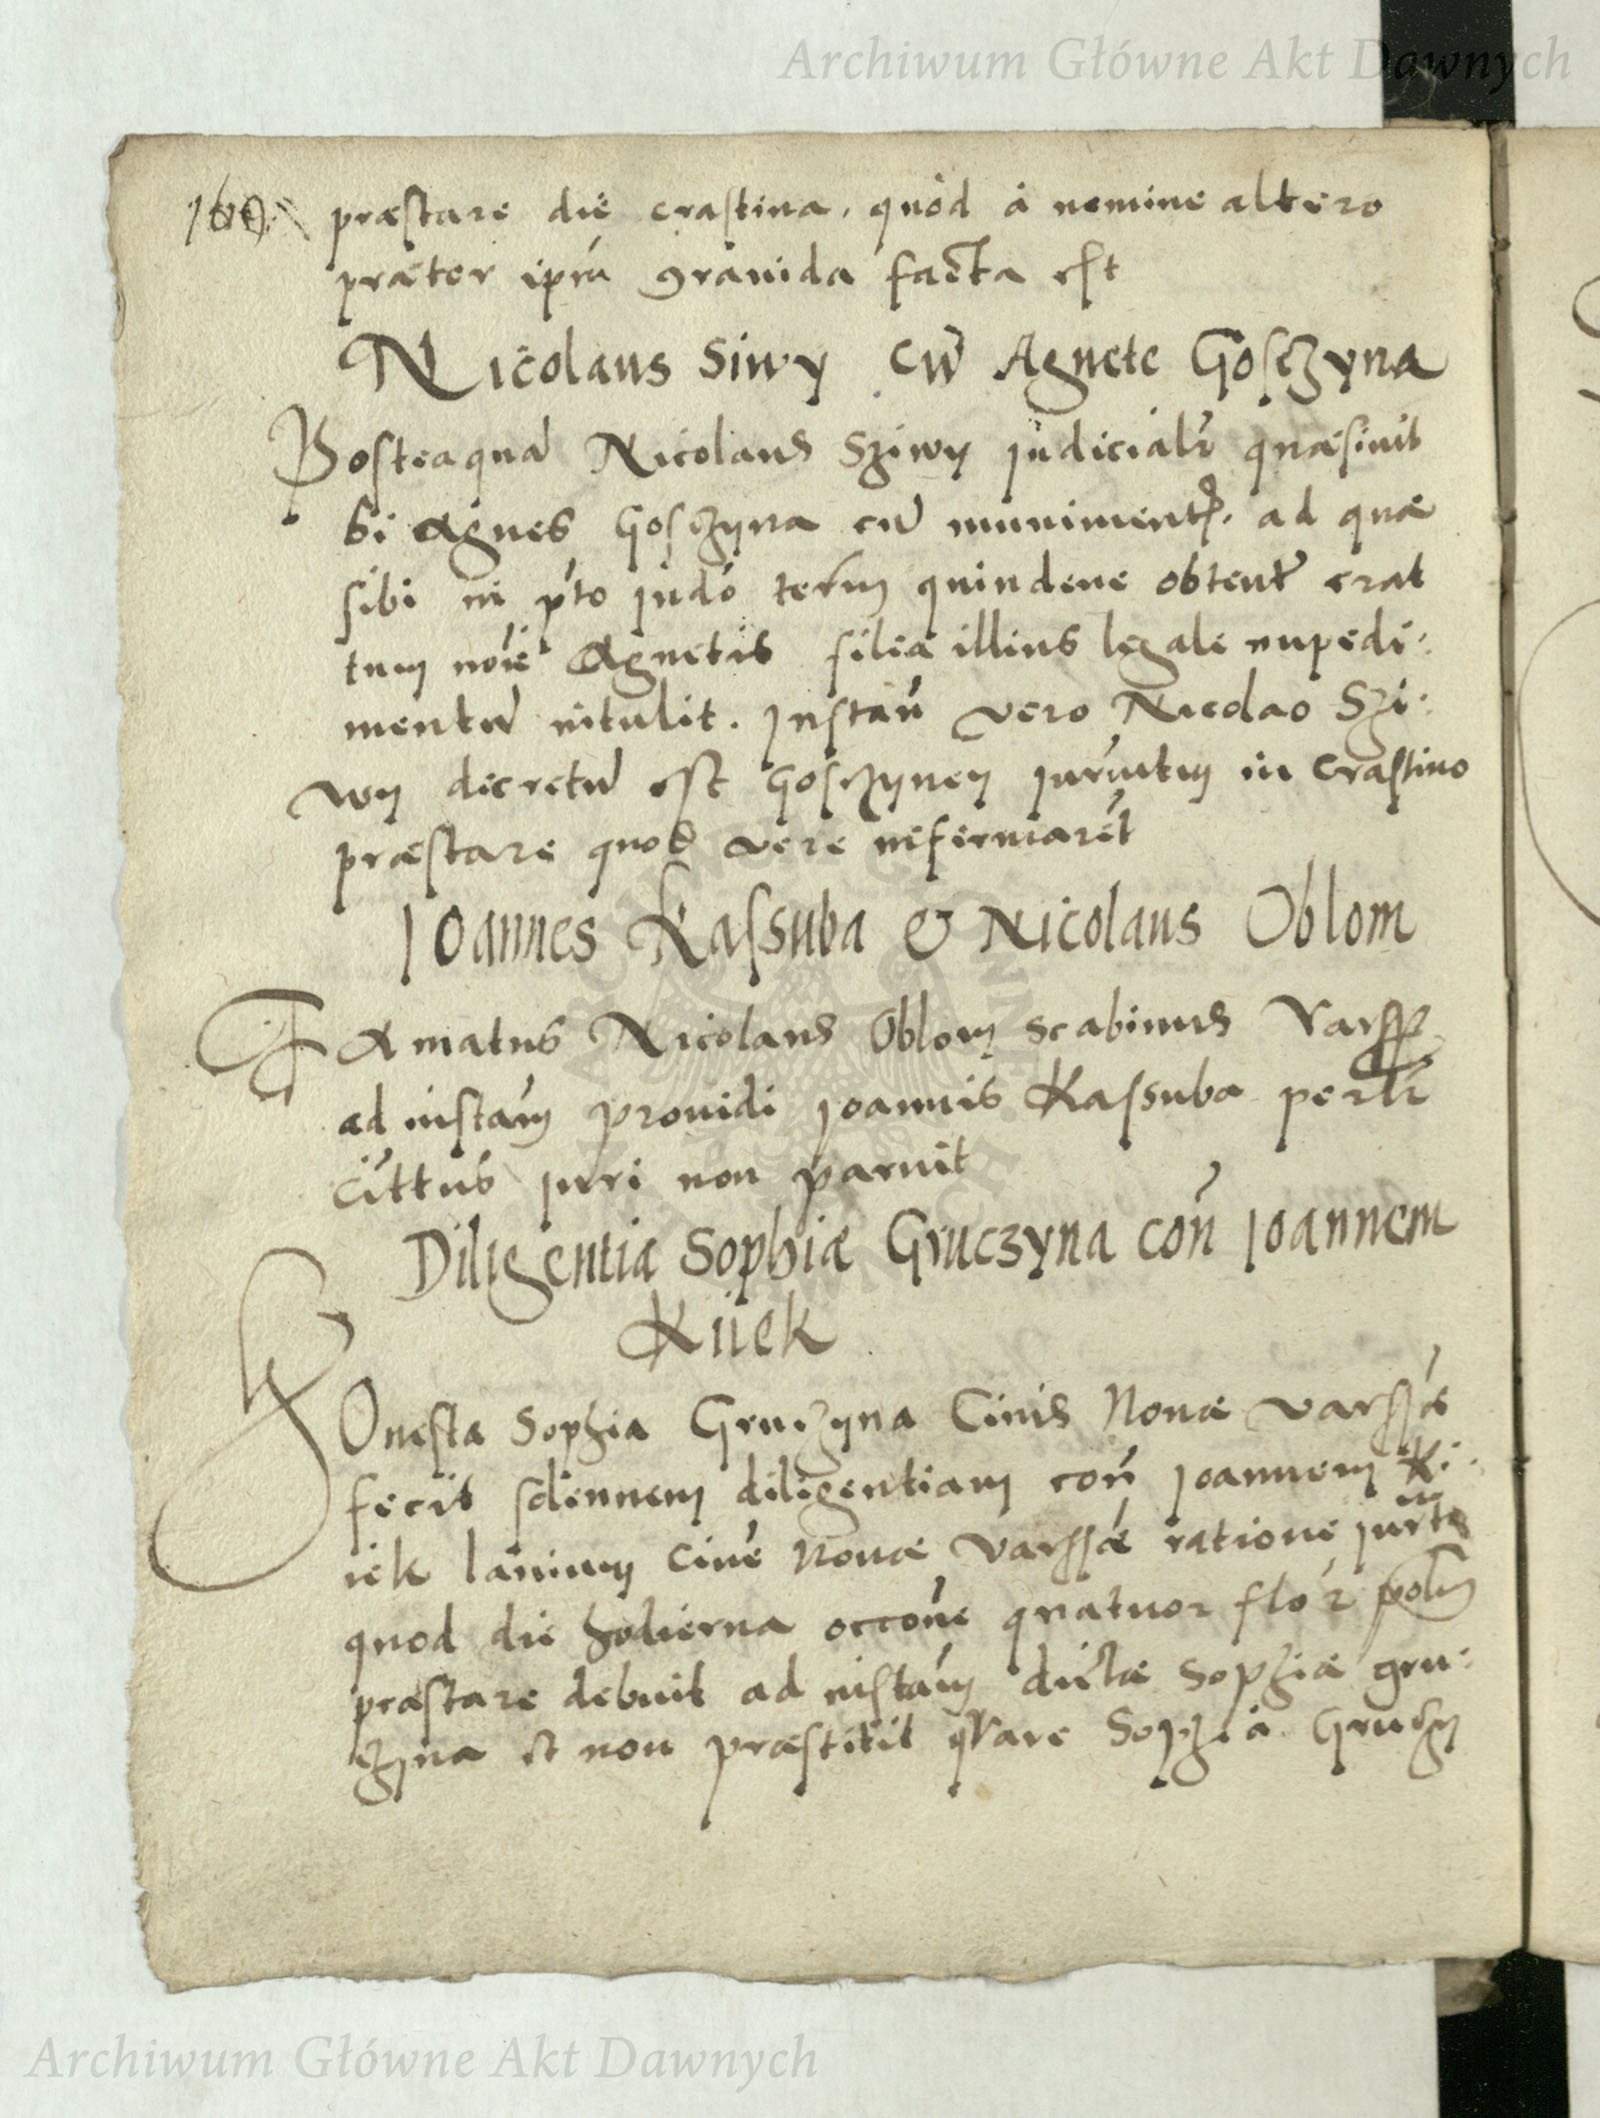 Archiwum Główne Akt Dawnych
160
præstare die crastina, quòd à nemine altero
præter ipsũ gravida facta est
Nicolaus Siwy cũ Agnete Gosczyna
Posteaquã Nicolaus Sziwy judicialr̃ quæsivit
Si Agnes Gosczyna cũ muniment. ad quæ
sibi in pñto judõ term quindene obtent erat
tum noie Agnetis filiæ illius legale inpedi-
mentũ intulit. Instañ vero Nicolao Szi-
wy dicretũ est Gosczyney jurñtum in Crastino
præstare quod vere infirmaret
Ioannes Kassuba & Nicolaus Oblom
FAmatus Nicolaus Oblom Scabinus Varss
ad instañ providi Joannis Kassuba perltr
Cittus juri non paruit
Diligentia Sophiæ Gruczyna coñ Ioannem
Kiiek
HOnesta Sophia Gruczyna Civis Novæ Varssæ
fecit solennem diligentiam coñ Joannem Ki-
iek lanium Civẽ Novæ Varssæ ratione jurti
quod die hodierna occoñe quatuor flor polm
præstare debuit ad instañ dictæ Sophiæ gru-
czyna et non præstitit qare Sophia Gruczy
Archiwum Główne Akt Dawnych